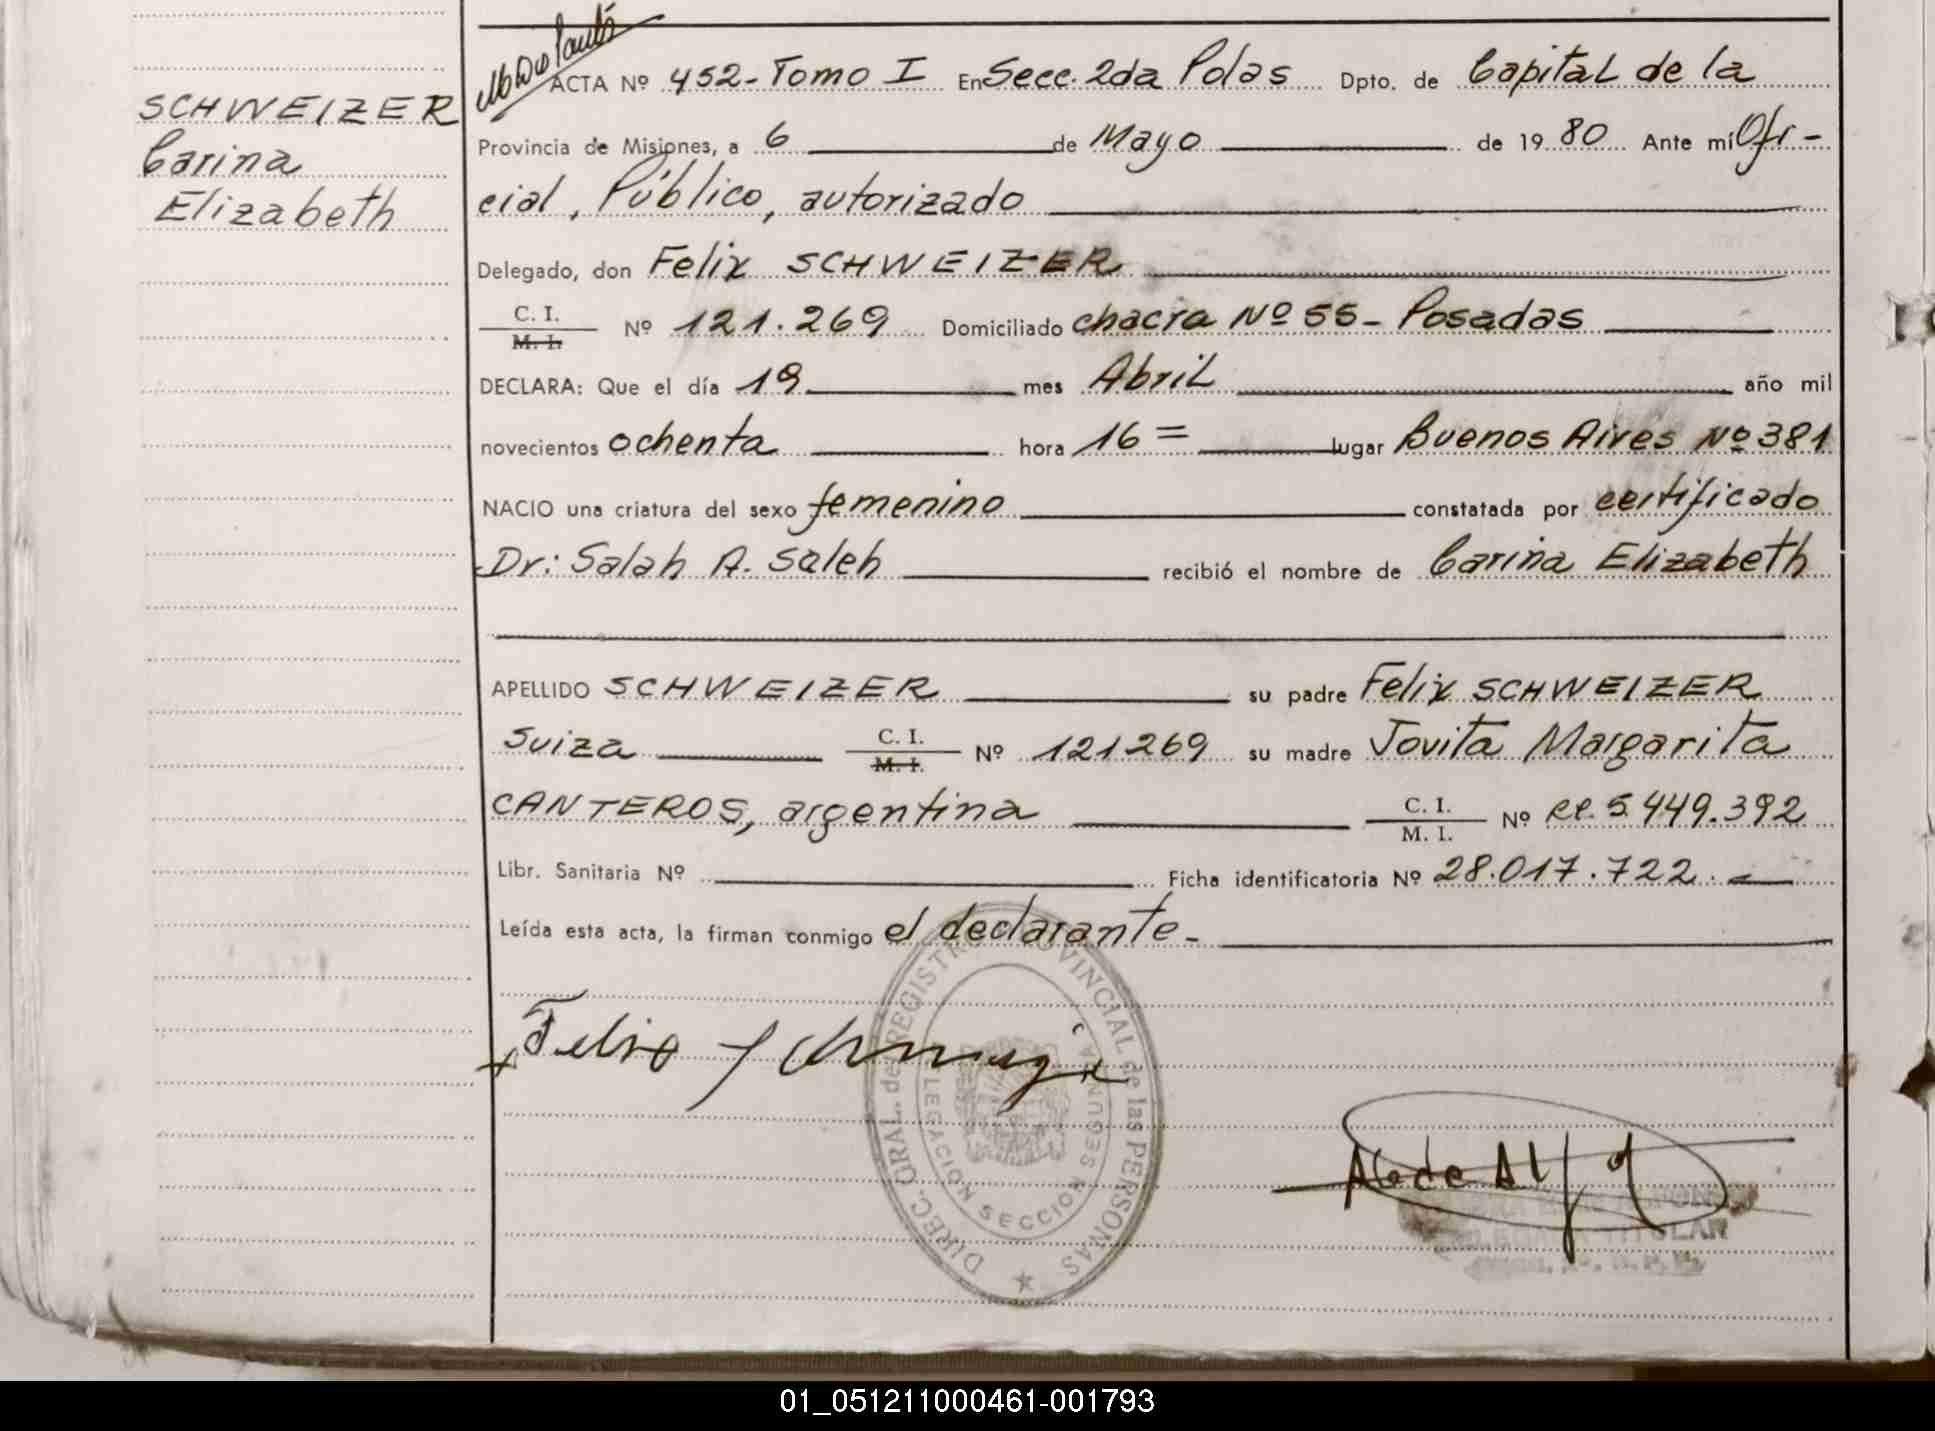 SCHWEIZER
Carina
Elizabeth
ACTA Nº 452 - Tomo I En Secc. 2da Pdas Dpto. de Capital de la
Provincia de Misiones, a 6 de Mayo de 19 80 Ante mí Ofi-
cial, Público, autorizado
Delegado, don Felix SCHWEIZER
C. I.
M. I. Nº 121.269 Domiciliado chacra Nº 55 - Posadas
DECLARA: Que el día 19 mes Abril año mil
novecientos ochenta hora 16 = lugar Buenos Aires Nº 381
NACIO una criatura del sexo femenino constatada por certificado
Dr: Salah A. Saleh recibió el nombre de Carina Elizabeth
APELLIDO SCHWEIZER su padre Felix SCHWEIZER
Suiza C. I.
M. I. Nº 121269 su madre Jovita Margarita
CANTEROS, argentina C. I.
M. I. Nº 5.449.392
Libr. Sanitaria Nº Ficha identificatoria Nº 28.017.722.
Leída esta acta, la firman conmigo el declarante -
DIREC. GRAL. del REGISTRO PROVINCIAL de las PERSONAS
DELEGACION SECCION SEGUNDA
Felix
TITULAR
01_051211000461-001793